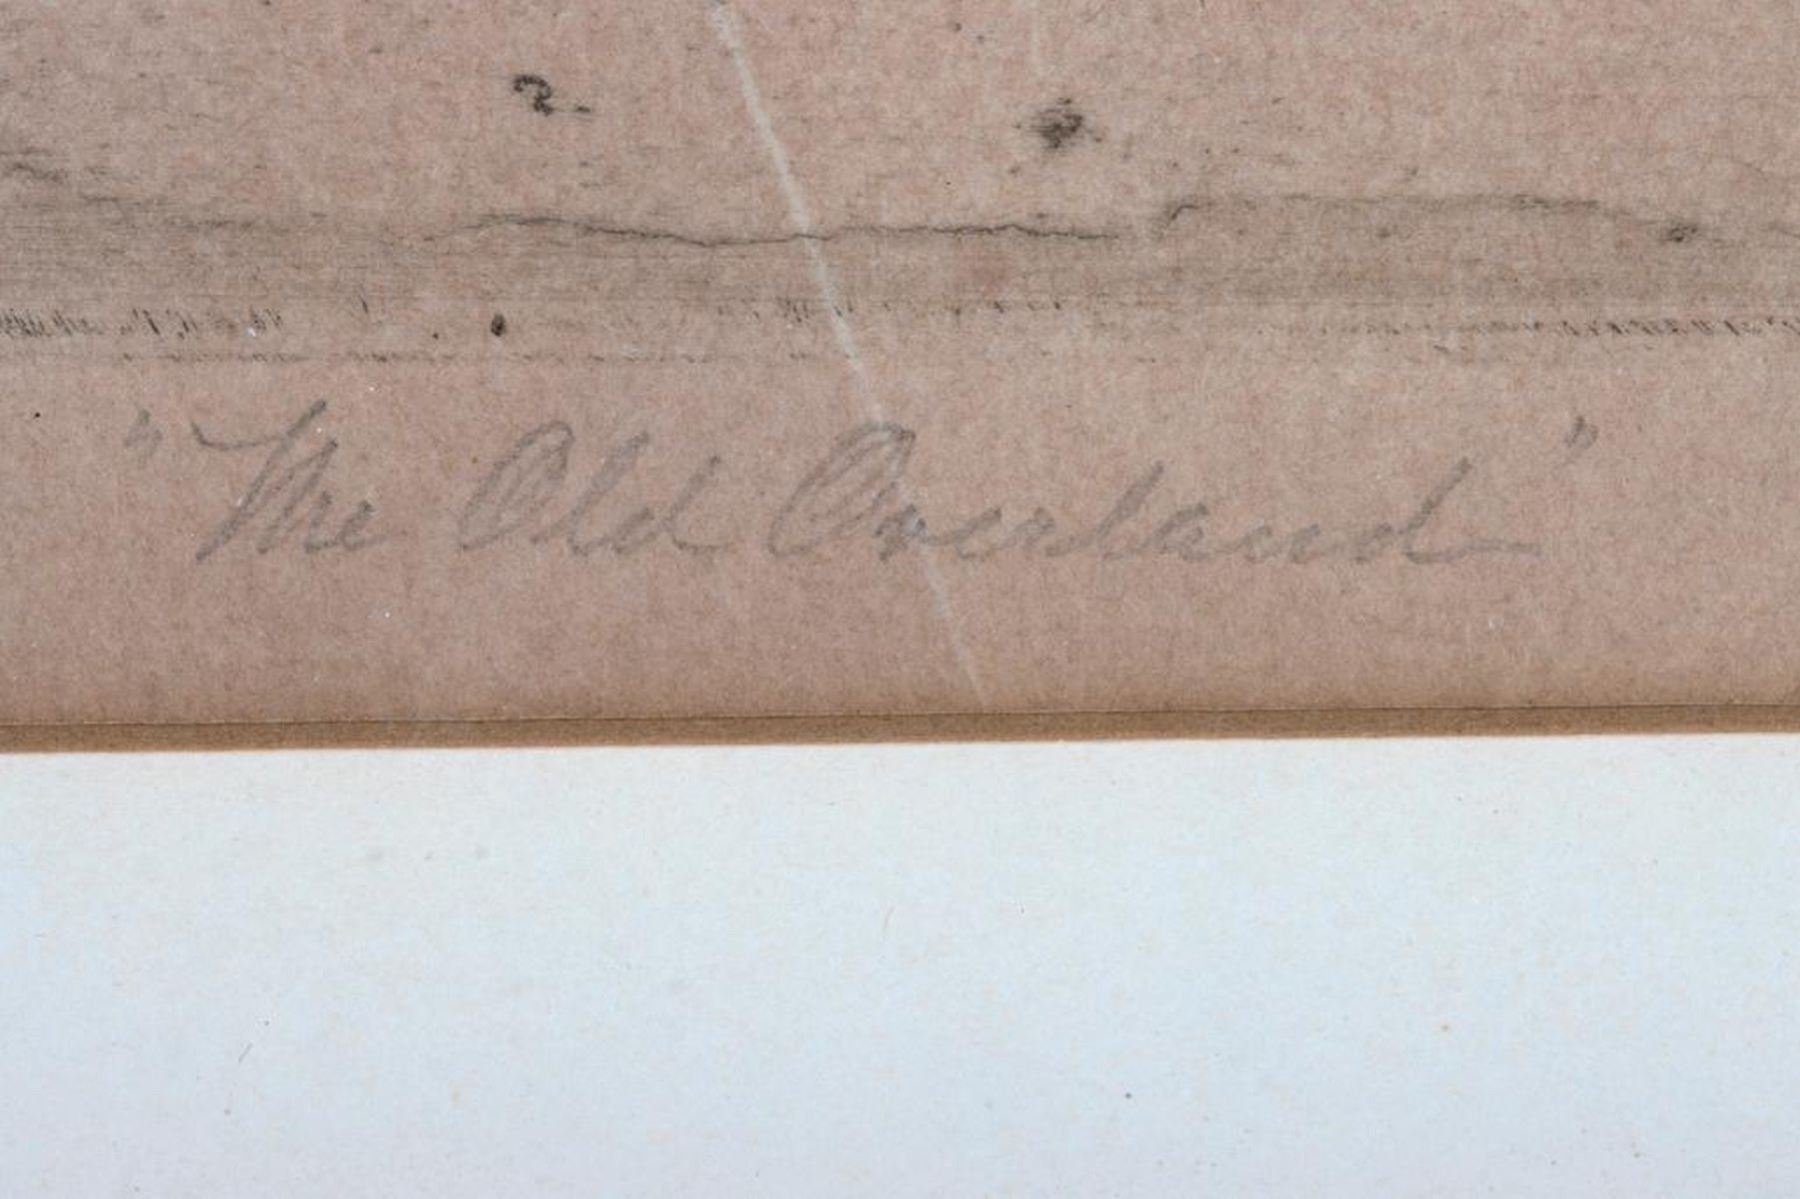 "The Old Overland"